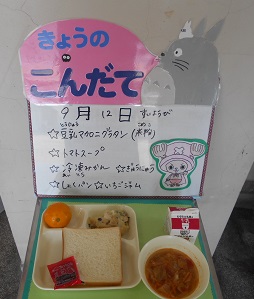 きょうの
こんだて
9月12日 すいようび
とうにゅう
☆豆乳マカロニグラタン(米粉)
☆トマトスープ
☆冷凍みかん ☆ぎゅうにゅう
☆しょくパン ☆いちごジャム